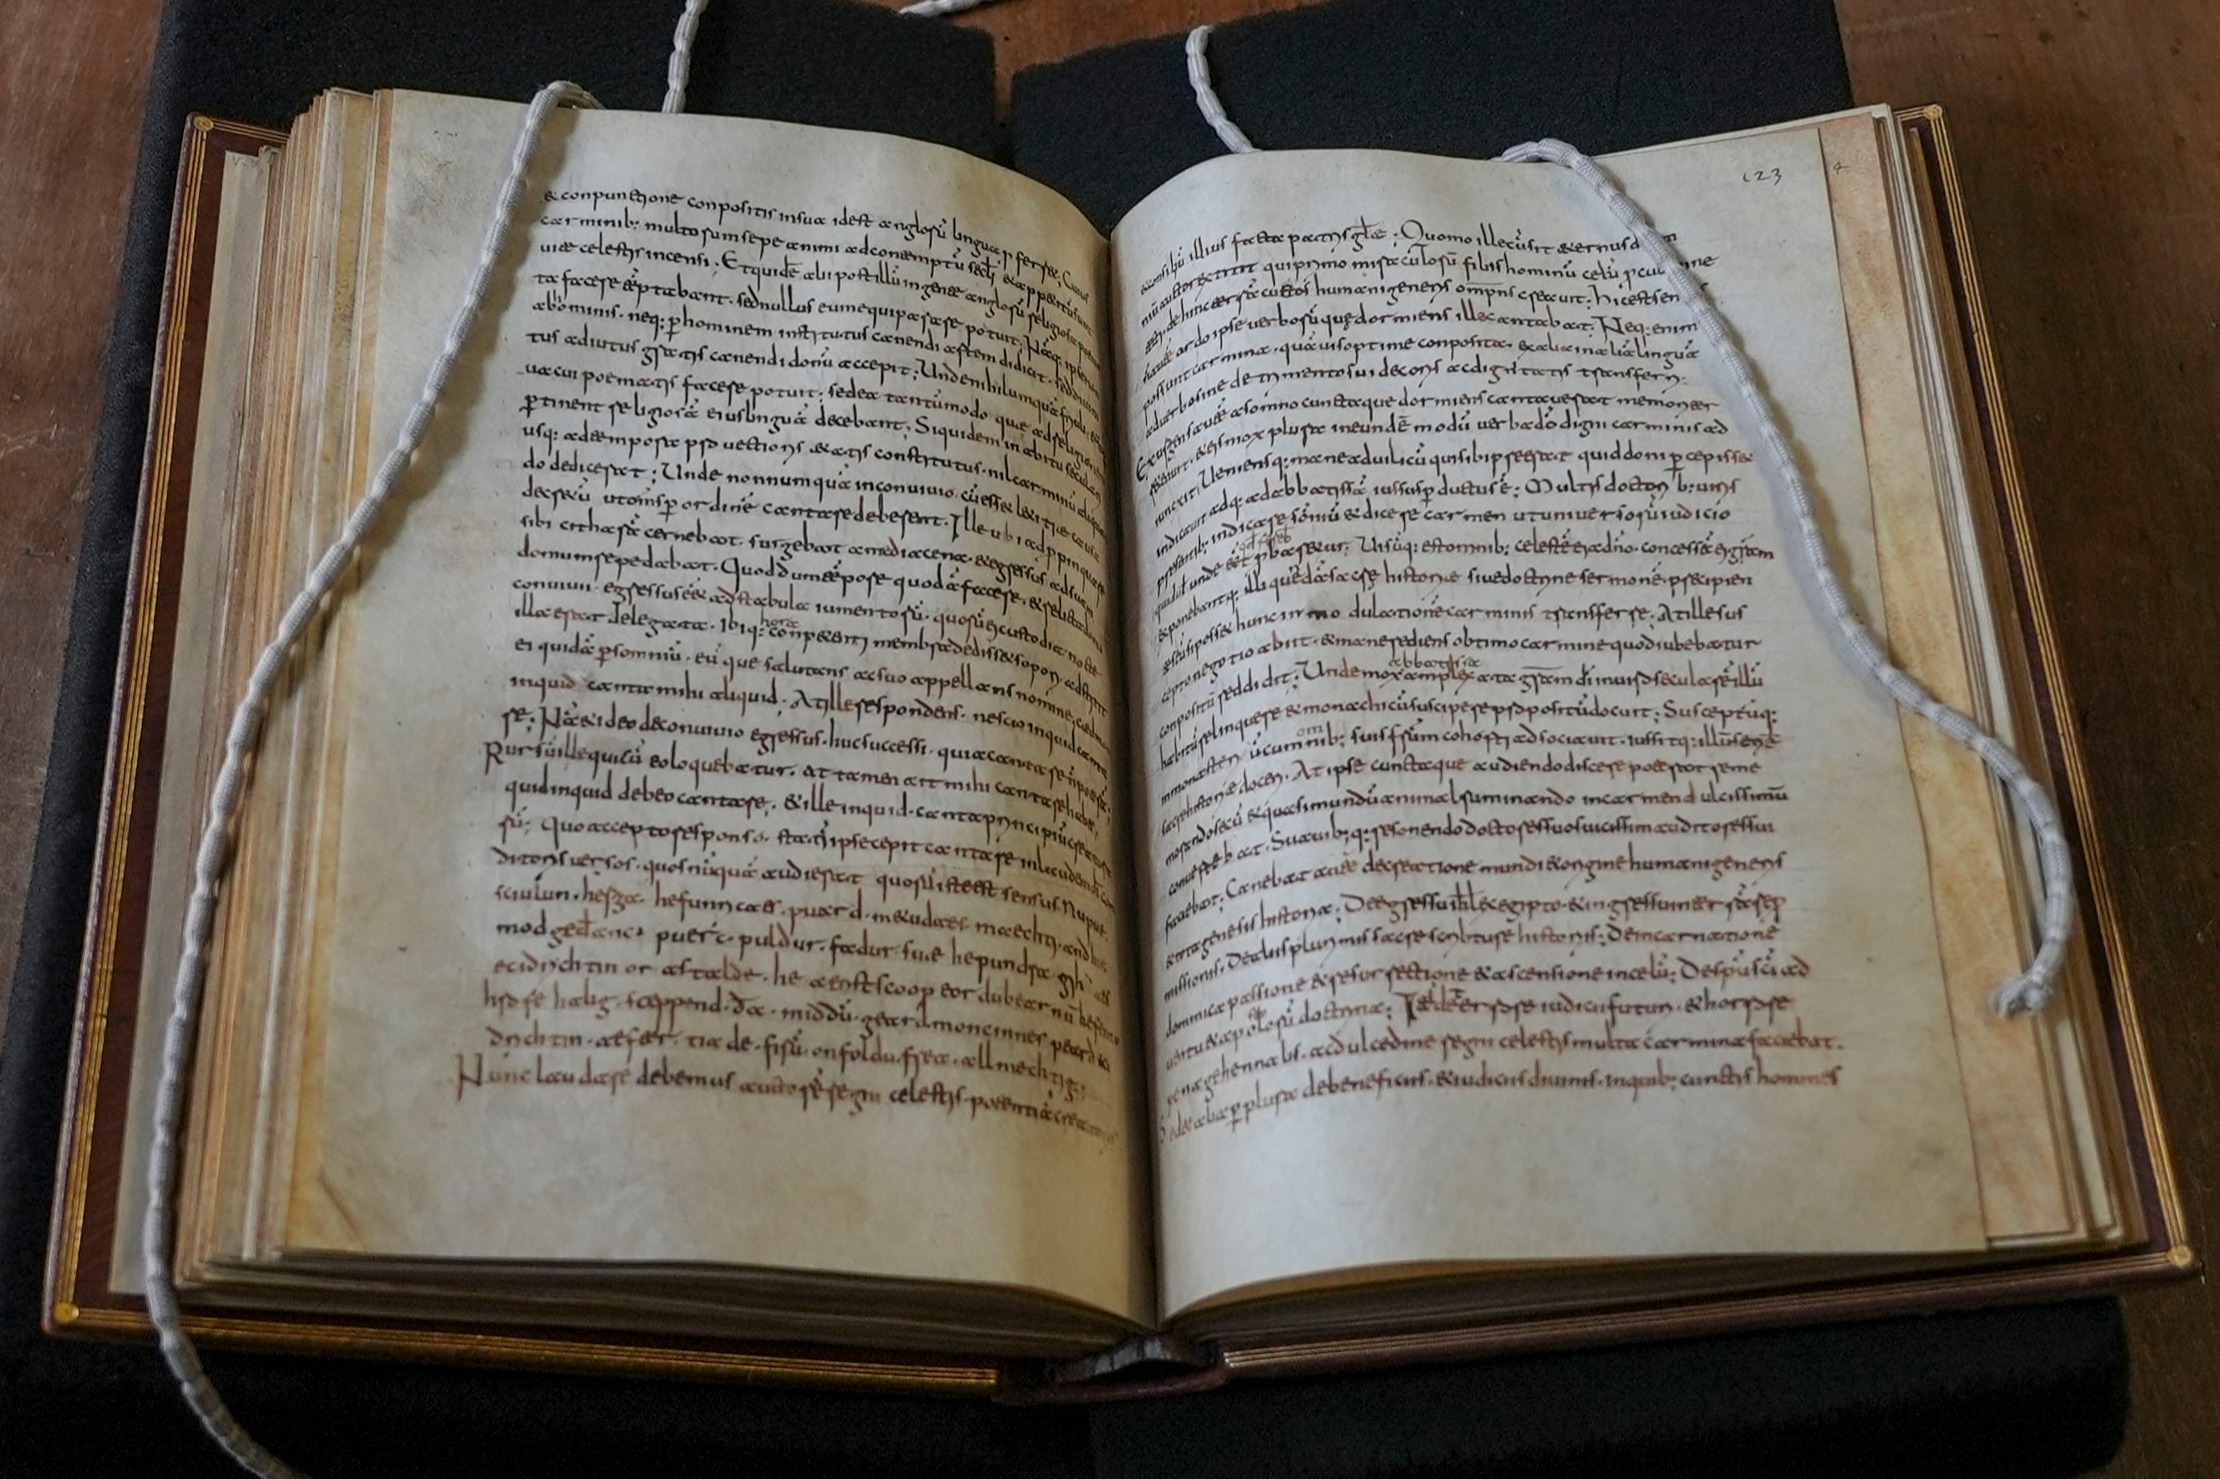 & conpunctione conpositis insua idest anglorū lingua pferret; Cuius
carminib: multorum sepe animi adcontemptū secli & appetitū sunt
uitae celestis incensi; Et quidē alii post illū in gente anglorū religiosa
ta facere teptabant. sed nullus eum equiparare potuit; Nāq: ipse
ab hominis. neq: p hominem institutus canendi artem didicit. sed
tus adiutus gratis canendi donū accepit; Unde nihil umquā friuoli
uacui poematis facere potuit; sed ea tantūmodo que ad religionem
ptinent religiosā eius linguā decebant; Siquidem in abitu seculari
usq: ad tempora prouectioris aetatis constitutus. nil carminū aliquan
do dedicerat; Unde non numquā in conuiuio. cū esset letitie causa
decretū ut oms p ordinē cantare deberent. Ille ubi adppinquare
sibi citharā cernebat. surgebat a media cena. & egressus ad suam
domum repedabat. Quod dum tēpore quodā faceret. & relicta domu
conuiuii. egressus eēt ad stabula iumentorū. quorū ei custodia nocte
illa erat delegata. Ibiq: hora conpetenti membra dedisset sopori. adstitit
ei quidā p somniū. eū que salutans ac suo appellans nomine. caedmon
inquid canta mihi aliquid; At ille respondens. nescio inquid canta
re; Nā & ideo de conuiuio egressus. huc successi. quia cantare n̄ poterā;
Rursū ille qui cū eo loquebatur. at tamen ait mihi cantare habes;
quid inquid debeo cantare; & ille inquid. canta principiū creatura
rū; Quo accepto responso. statī ipse cepit cantare in laude dei con
ditoris uersos. quos nūquā audierat quorū iste est sensus. Nu pue
sciulun. herga. hefunricaes. puard. metudaes. maechti. and his
modgedanc. puerc. puldur. fadur. sue he pundra. gihuaes
eci drichtin or astalde. he aerist scoop eordu bearnū hefen to
hrofe halig. sceppend. ða. middū. geard. moncinnes peard eci
drichtin. aefter. tiade. firū. on foldu. frea. allmechtig;
Nunc laudare debemus auctorē regni celestis. potentiā creatoris
123
& consiliū illius facta patris glae; Quomo ille cū sit &ernus d
nū auctor extitit qui primo miraculosū filiis hominū celū p culmine
tecti. dehinc terrā custos humani generis omnips creauit; Hic est sen
haud ordo ipse uerborū quę dormiens ille cantabat; Neq: enim
possunt carmina. quāuis optime conposita. ex alia in aliā linguā
ad uerbo sine detrimento sui decoris ac dignitatis transferri;
Exurgens autē a somno cuncta que dormiens cantauerat memoriter
retenuit. & eis mox plura in eundē modū uerba dō digni carminis ad
iunxit; Ueniensq: mane ad uilicū qui sibi preerat quid doni p cepisset
indicauit adq: ad abbatissā iussus p ductus ē; Multis doctorib: uiris
presentib: indicare somniū & dicere carmen ut uniuersorū iudicio
quid uł unde eēt pbaretur; Uisūq: est omnib: celestē ei a dn̄o. concessā eē grām
exponebantq: illi quēdā sacre historie siue doctrine sermonē. precipien
tes ei si posset hunc in modulationē carminis transferre; At ille sus
cepto negotio abiit. & mane rediens obtimo carmine quod iubebatur
conpositū reddidit; Unde mox abbatissa amplexata grām dī in uiro secularē illū
habitū relinquere & monachicū suscipere propositū docuit; Susceptūq:
in monasteriū cum omnib: suis frūm cohorti adsociauit. iussitq: illū seriē
sacre historiae doceri. At ipse cuncta que audiendo discere poterat reme
morando secū & quasi mundū animal ruminando in carmen dulcissimū
conuertebat. Suauib;q: resonendo doctores suos uicissim auditores sui
faciebat; Canebat autē de creatione mundi & origine humani generis
& tota genesis historia; De egressu isrl ex egipto. & ingressu in terrā rep
missionis. De aliis plurimis sacre scribture historiis; De incarnatione
dominica passione & resurrectione & ascensione in celū; De spū scī ad
uentu & apostolorū doctrina; Itē de terrore iudicii futuri. & horrore
pene gehennalis. ac dulcedine regni celestis multa carmina faciebat.
Sed & alia p plura de beneficiis. & iudiciis diuinis. in quib: cunctis homines